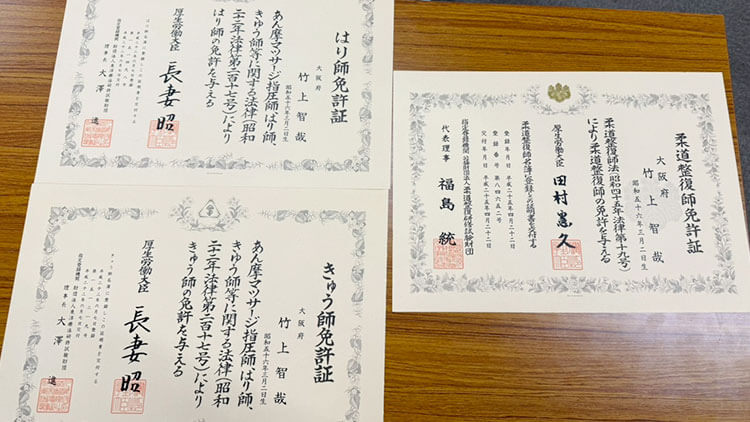 はり師免許証
大阪府
竹上智哉
昭和五十六年三月二日生
あん摩マツサージ指圧師、はり師、
きゆう師等に関する法律(昭和
二十二年法律第二百十七号)により
はり師の免許を与える
厚生労働大臣 長妻昭
理事長 大澤 進
きゆう師免許証
大阪府
竹上智哉
昭和五十六年三月二日生
あん摩マツサージ指圧師、はり師、
きゆう師等に関する法律(昭和
二十二年法律第二百十七号)により
きゆう師の免許を与える
厚生労働大臣 長妻昭
きゆう師名簿に登録しこの証明書を交付する
指定登録機関 財団法人東洋療法研修試験財団
理事長 大澤 進
柔道整復師免許証
大阪府
竹上智哉
昭和五十六年三月二日生
柔道整復師法(昭和四十五年法律第十九号)
により柔道整復師の免許を与える
厚生労働大臣 田村憲久
柔道整復師名簿に登録しこの証明書を交付する
登録年月日 平成二十五年四月二十二日
登録番号 第八四六五二号
交付年月日 平成二十五年四月二十二日
指定登録機関 公益財団法人柔道整復研修試験財団
代表理事 福島 統